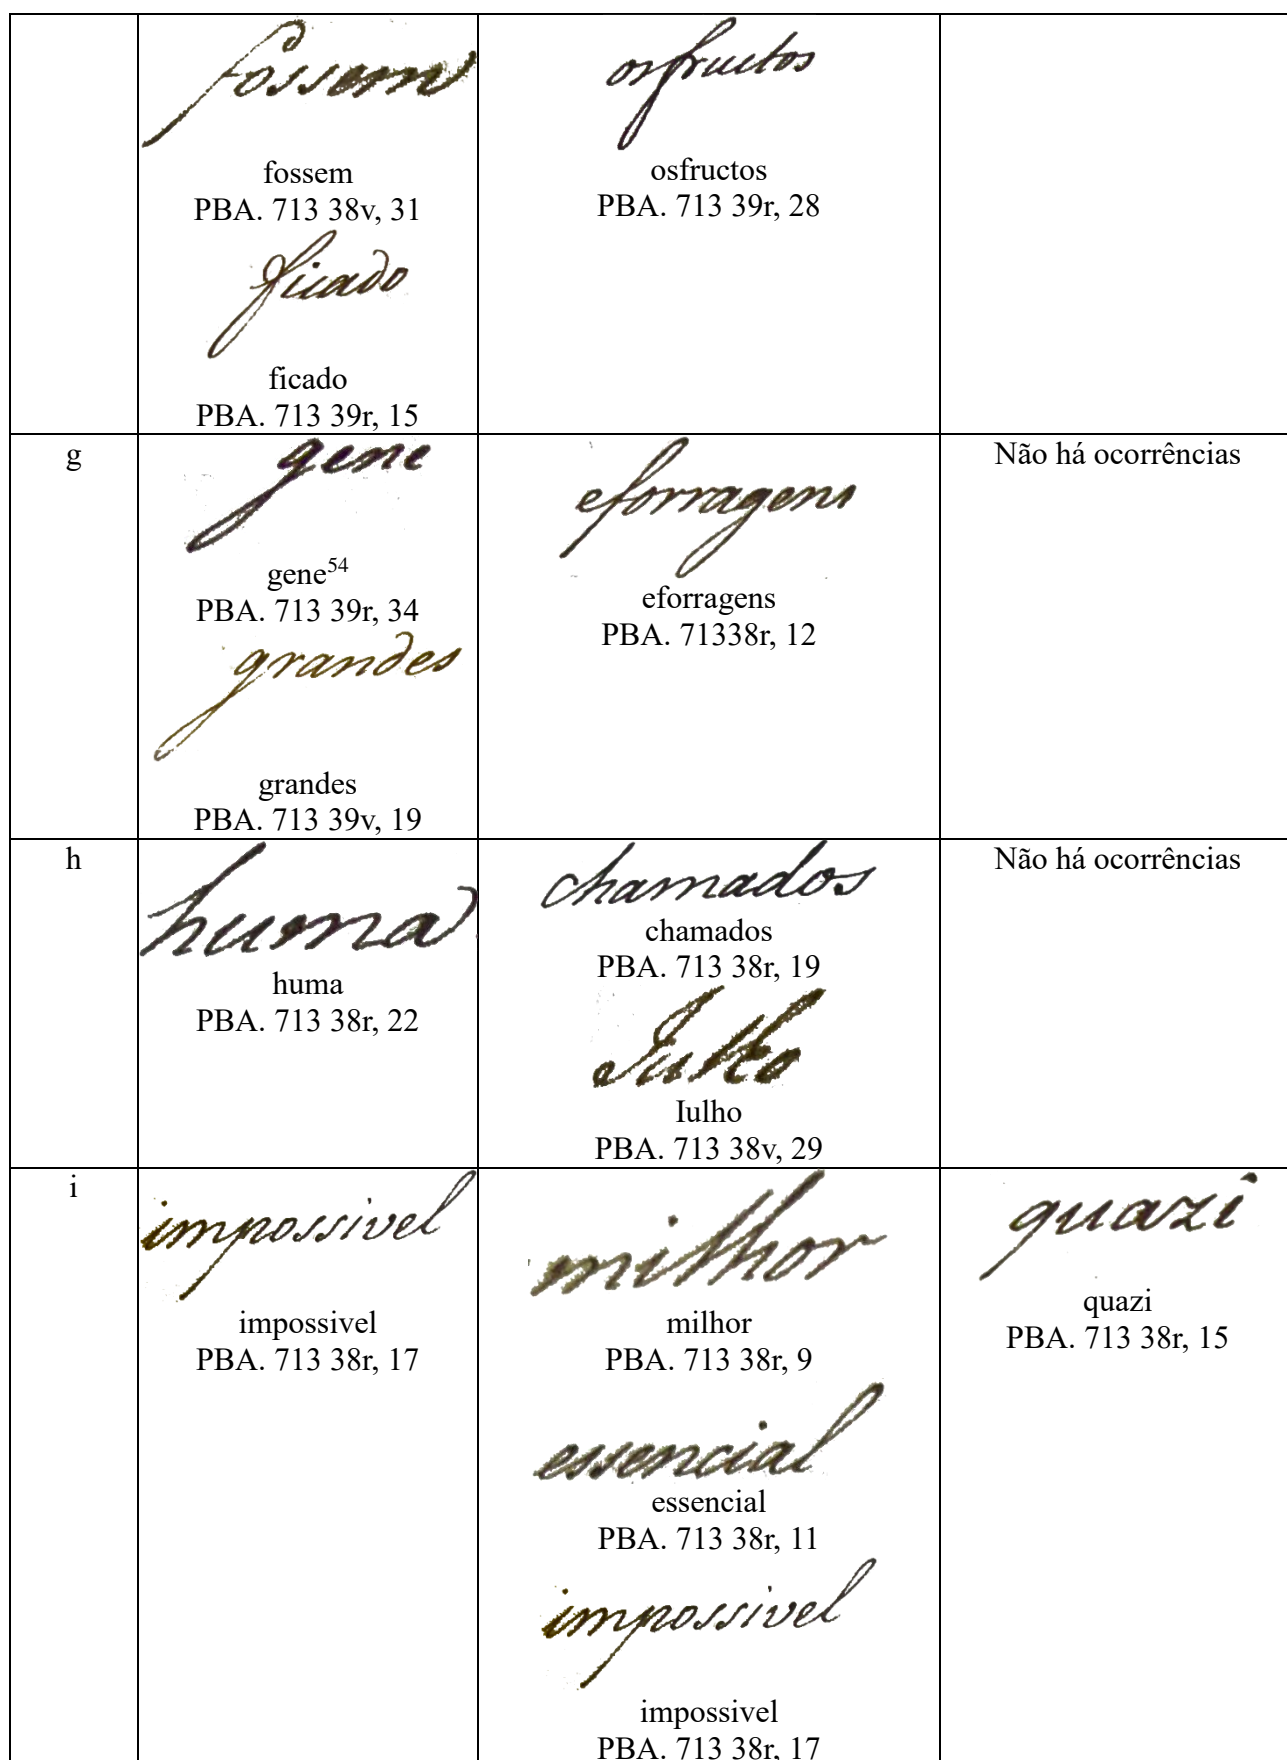 fossem
fossem
PBA. 713 38v, 31
ficado
ficado
PBA. 713 39r, 15
osfructos
osfructos
PBA. 713 39r, 28
g
gene
gene54
PBA. 713 39r, 34
grandes
grandes
PBA. 713 39v, 19
eforragens
eforragens
PBA. 71338r, 12
Não há ocorrências
h
huma
huma
PBA. 713 38r, 22
chamados
chamados
PBA. 713 38r, 19
Iulho
Iulho
PBA. 713 38v, 29
Não há ocorrências
i
impossivel
impossivel
PBA. 713 38r, 17
milhor
milhor
PBA. 713 38r, 9
essencial
essencial
PBA. 713 38r, 11
impossivel
impossivel
PBA. 713 38r, 17
quazi
quazi
PBA. 713 38r, 15